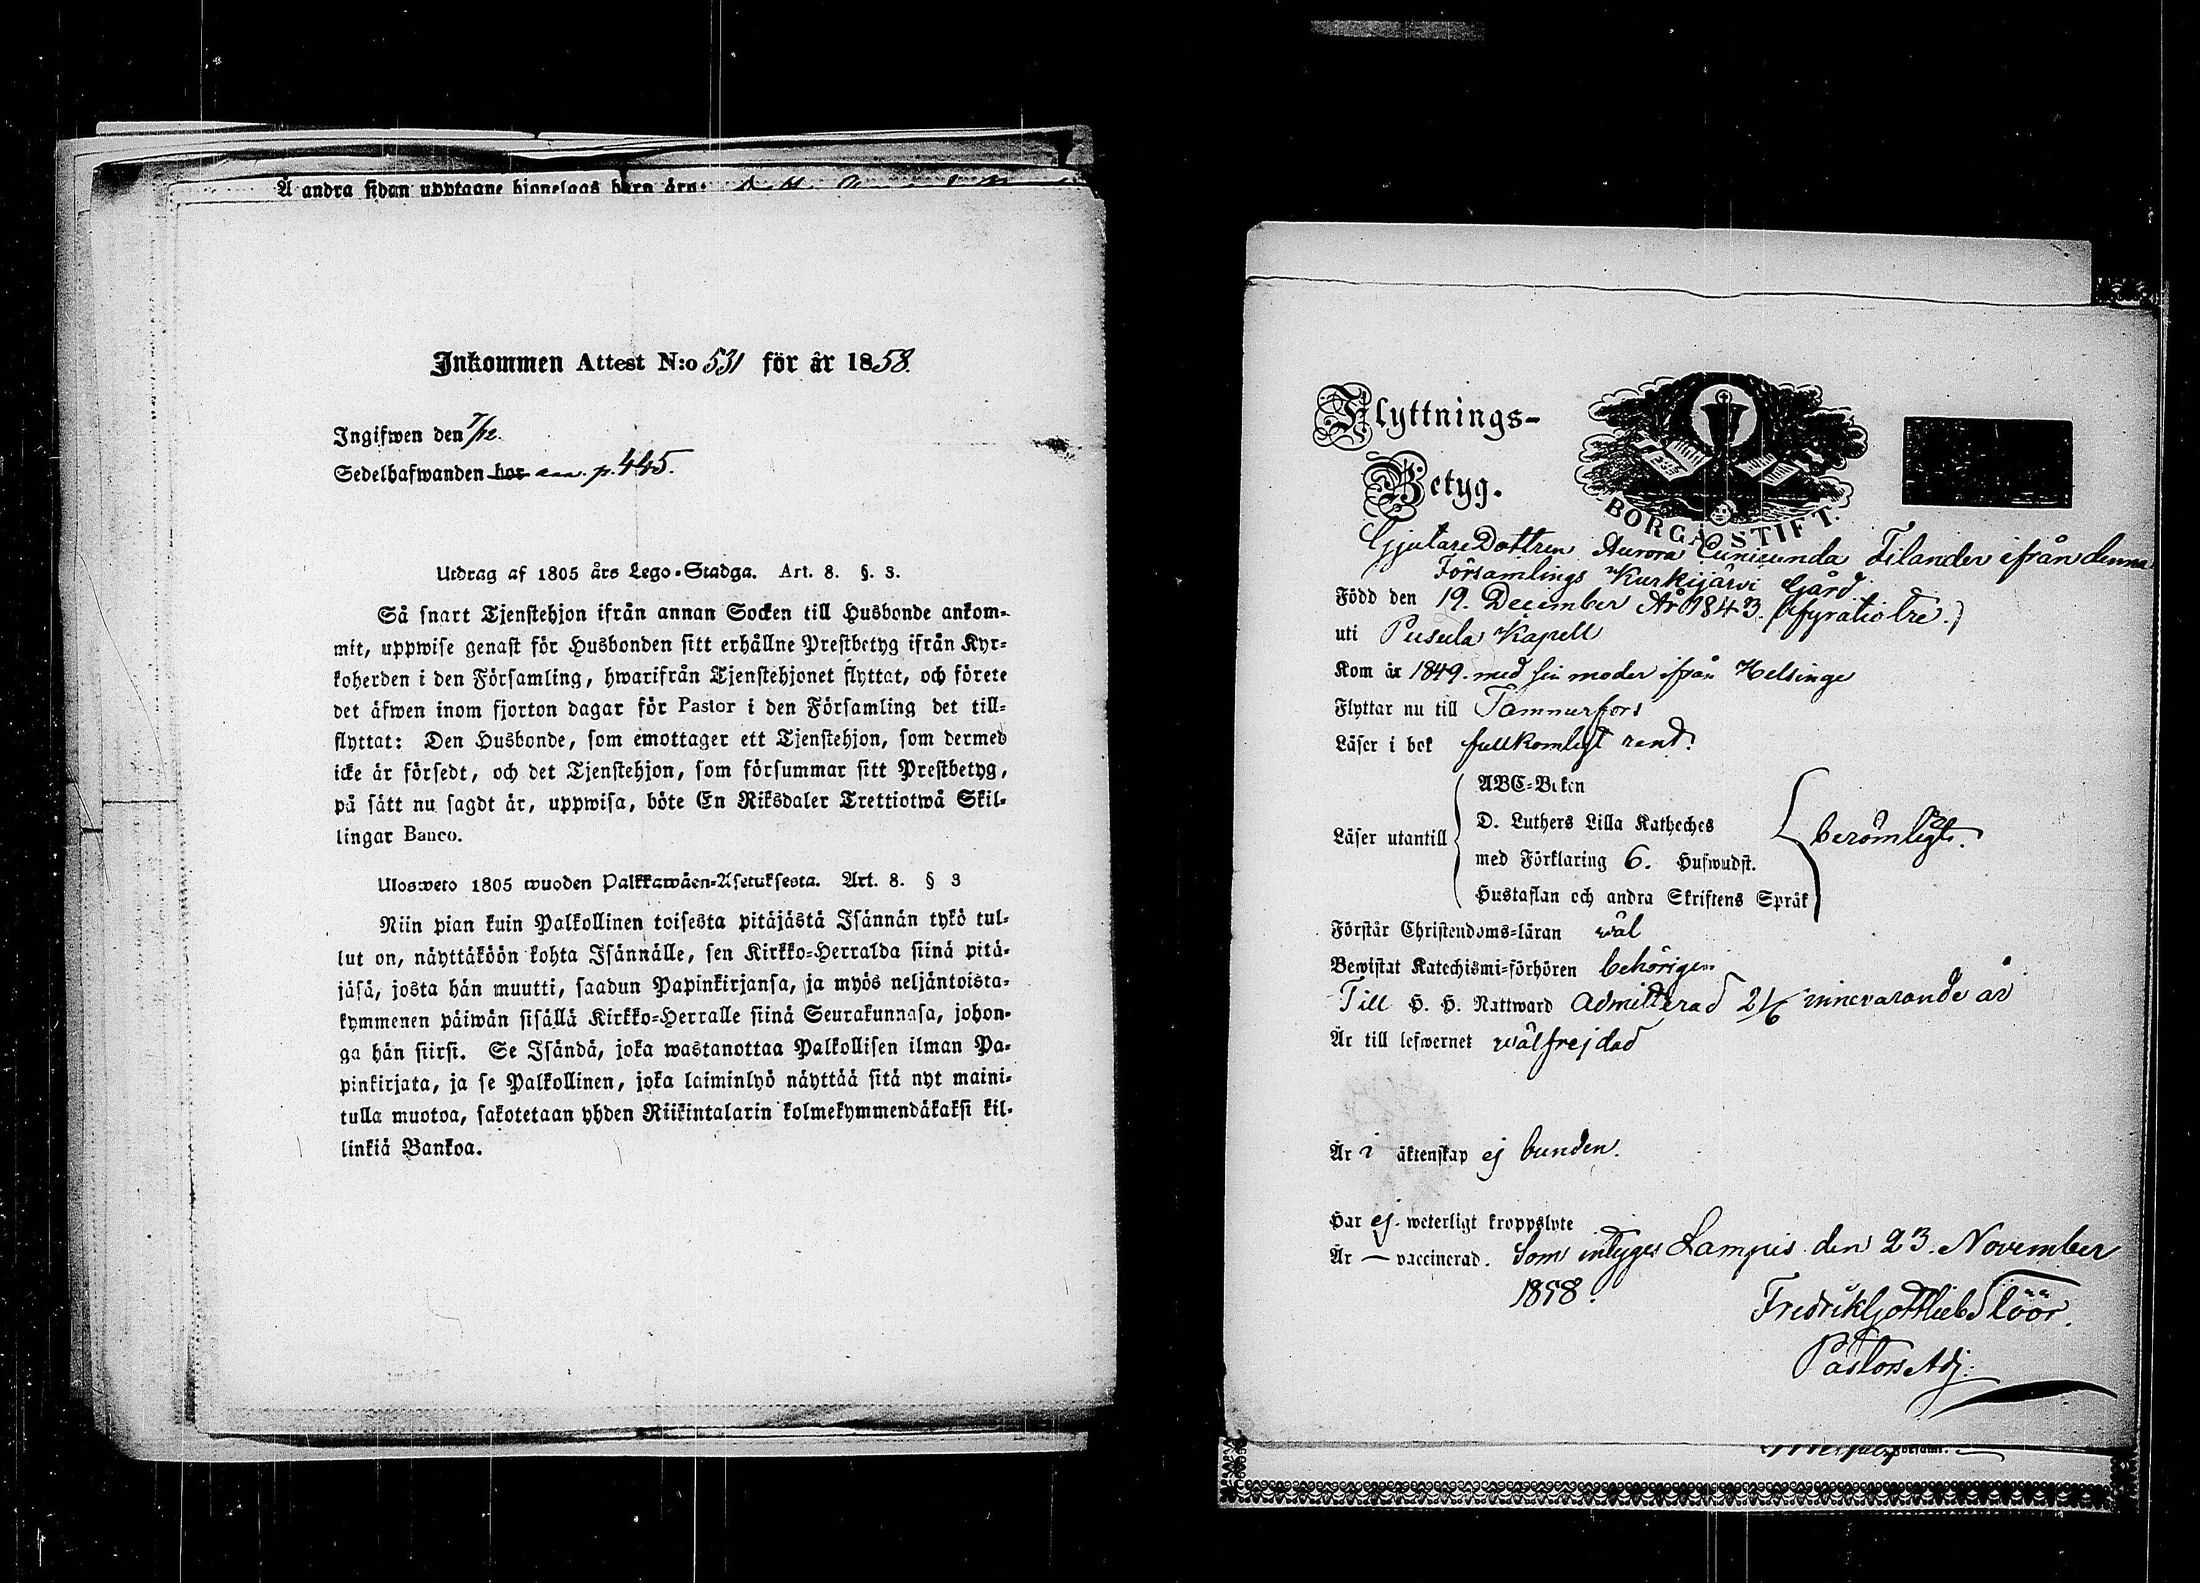 Å andra sidan upptagne hjonelags barn äro:
Inkommen Attest N:o 531 för år 1858.
Ingifwen den 7/12.
Sedelhafwanden bor p. 445.
Utdrag af 1805 års Lego-Stadga. Art. 8. §. 3.
Så snart Tjenstehjon ifrån annan Socken till Husbonde ankom-
mit, uppwise genast för Husbonden sitt erhållne Prestbetyg ifrån Kyr-
koherden i den Församling, hwarifrån Tjenstehjonet flyttat, och förete
det äfwen inom fjorton dagar för Pastor i den Församling det till-
flyttat: Den Husbonde, som emottager ett Tjenstehjon, som dermed
icke är försedt, och det Tjenstehjon, som försummar sitt Prestbetyg,
på sätt nu sagdt är, uppwisa, böte En Riksdaler Trettiotwå Skil-
lingar Banco.
Ulosweto 1805 wuoden Palkkawäen-Asetuksesta. Art. 8. § 3
Niin pian kuin Palkollinen toisesta pitäjästä Isännän tykö tul-
lut on, näyttäköön kohta Isännälle, sen Kirkko-Herralda siinä pitä-
jäsä, josta hän muutti, saadun Papinkirjansa, ja myös neljäntoista-
kymmenen päiwän sisällä Kirkko-Herralle siinä Seurakunnasa, johon-
ga hän siirsi. Se Isändä, joka wastanottaa Palkollisen ilman Pa-
pinkirjata, ja se Palkollinen, joka laiminlyö näyttää sitä nyt maini-
tulla muotoa, sakotetaan yhden Riikintalarin kolmekymmendäkaksi kil-
linkiä Bankoa.
Flyttnings-
Betyg.
BORGÅ STIFT.
Gjutare Dottren Aurora Cunicunda Filander ifrån denna
Församlings Kurkijärvi Gård
Född den 19. December År 1843. (fyratiotre.)
uti Pusula Kapell
Kom år 1849. med sin moder ifrån Helsinge
Flyttar nu till Tammerfors
Läser i bok fullkomligt rent.
Läser utantill
ABC-Boken
D. Luthers Lilla Katheches
med Förklaring 6. Hufwudst.
Hustaflan och andra Skriftens Språk
berömligt.
Förstår Christendoms-läran wäl
Bewistat Katechismi-förhören behörigen
Till H. H. Nattward admitterad 2/6 innevarande år
Är till lefwernet wälfrejdad
Är i äktenskap ej bunden.
Har ej weterligt kroppslyte
Är — vaccinerad. Som intygas Lampis den 23. November
1858.
Fredrik Gottlieb Flöör.
Pastors Adj.